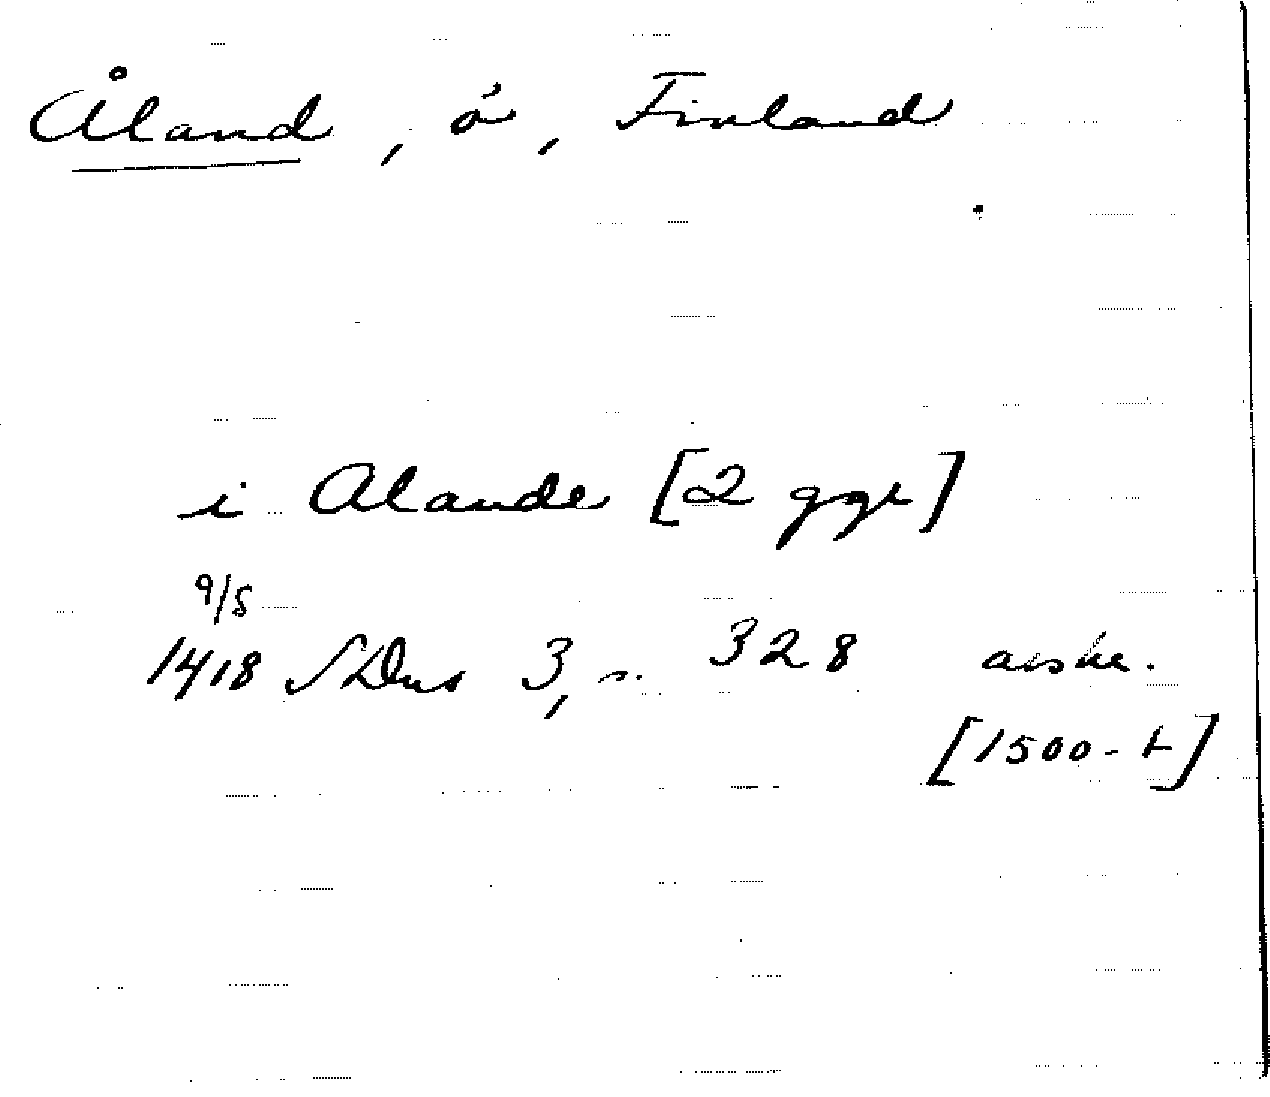 Åland, ö, Finland
i Alande [2 ggr]
9/5
1418 SDns 3, s. 328 avskr.
[1500-t]